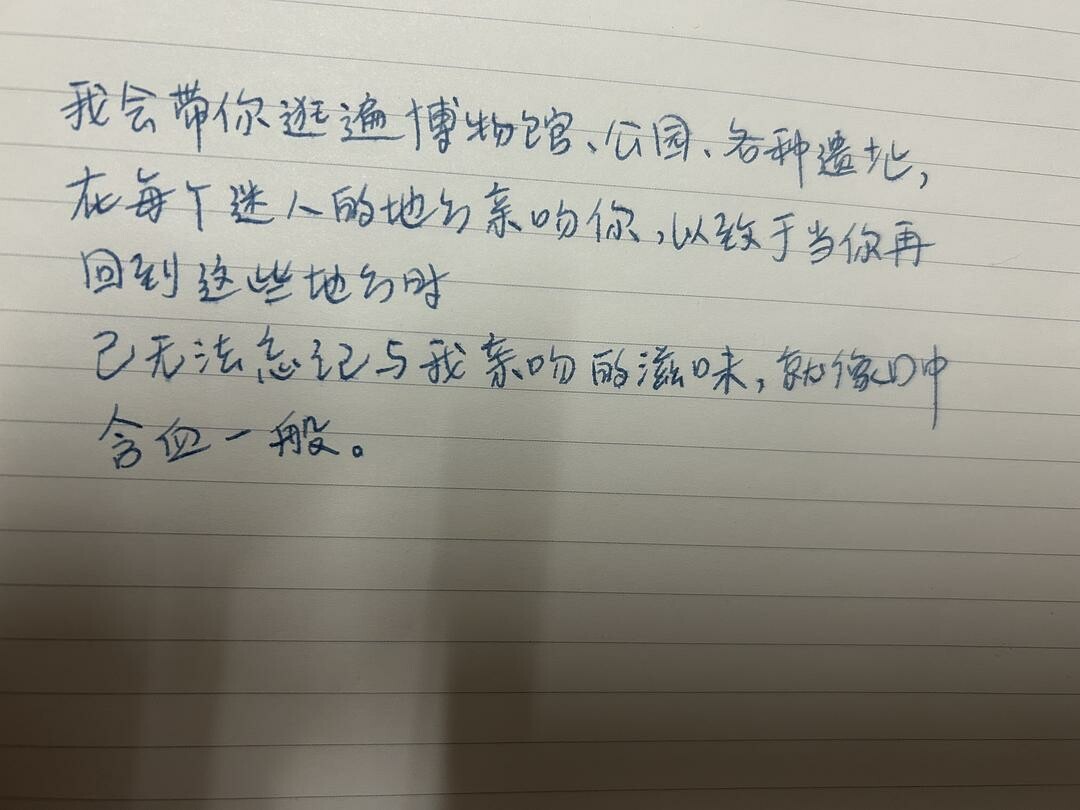 我会带你逛遍博物馆、公园、各种遗址,
在每个迷人的地方亲吻你,以致于当你再
回到这些地方时
已无法忘记与我亲吻的滋味,就像口中
含血一般。